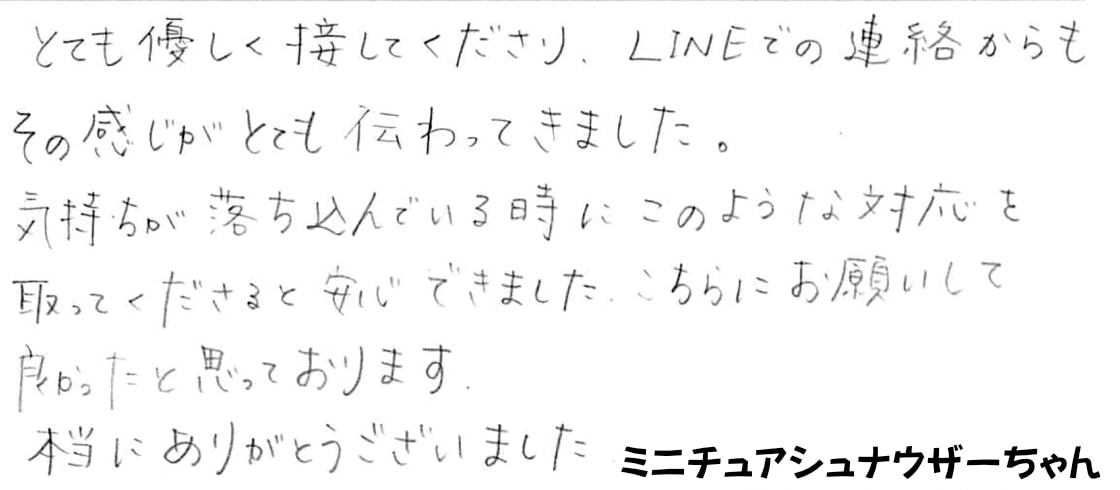 とても優しく接してくださり、LINEでの連絡からも
その感じがとても伝わってきました。
気持ちが落ち込んでいる時にこのような対応を
取ってくださると安心できました。こちらにお願いして
良かったと思っております。
本当にありがとうございました
ミニチュアシュナウザーちゃん